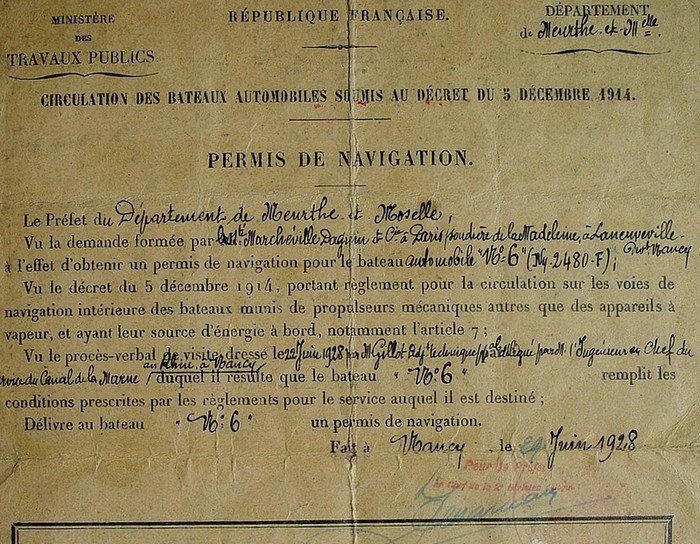 MINISTÈRE
DES
TRAVAUX PUBLICS.
RÉPUBLIQUE FRANÇAISE.
DÉPARTEMENT
de Meurthe-et-Mlle.
CIRCULATION DES BATEAUX AUTOMOBILES SOUMIS AU DÉCRET DU 5 DÉCEMBRE 1914.
PERMIS DE NAVIGATION.
Le Préfet du Département de Meurthe et Moselle,
Vu la demande formée par la Sté Marchéville Daguin et Cie à Paris, soudière de la Madeleine, à Laneuveville-
à l'effet d'obtenir un permis de navigation pour le bateau automobile "No 6" (Ny-2480-F); Nancy
Vu le décret du 5 décembre 1914, portant règlement pour la circulation sur les voies de
navigation intérieure des bateaux munis de propulseurs mécaniques autres que des appareils à
vapeur, et ayant leur source d'énergie à bord, notamment l'article 7;
Vu le procès-verbal de visite dressé le 22 Juin 1928 par M. Gillot Adjt technique délégué par M. l'Ingénieur en Chef du
service du Canal de la Marne au Rhin, à Nancy, duquel il résulte que le bateau "No 6" remplit les
conditions prescrites par les règlements pour le service auquel il est destiné;
Délivre au bateau "No 6" un permis de navigation.
Fait à Nancy, le 29 Juin 1928.
Pour le Préfet